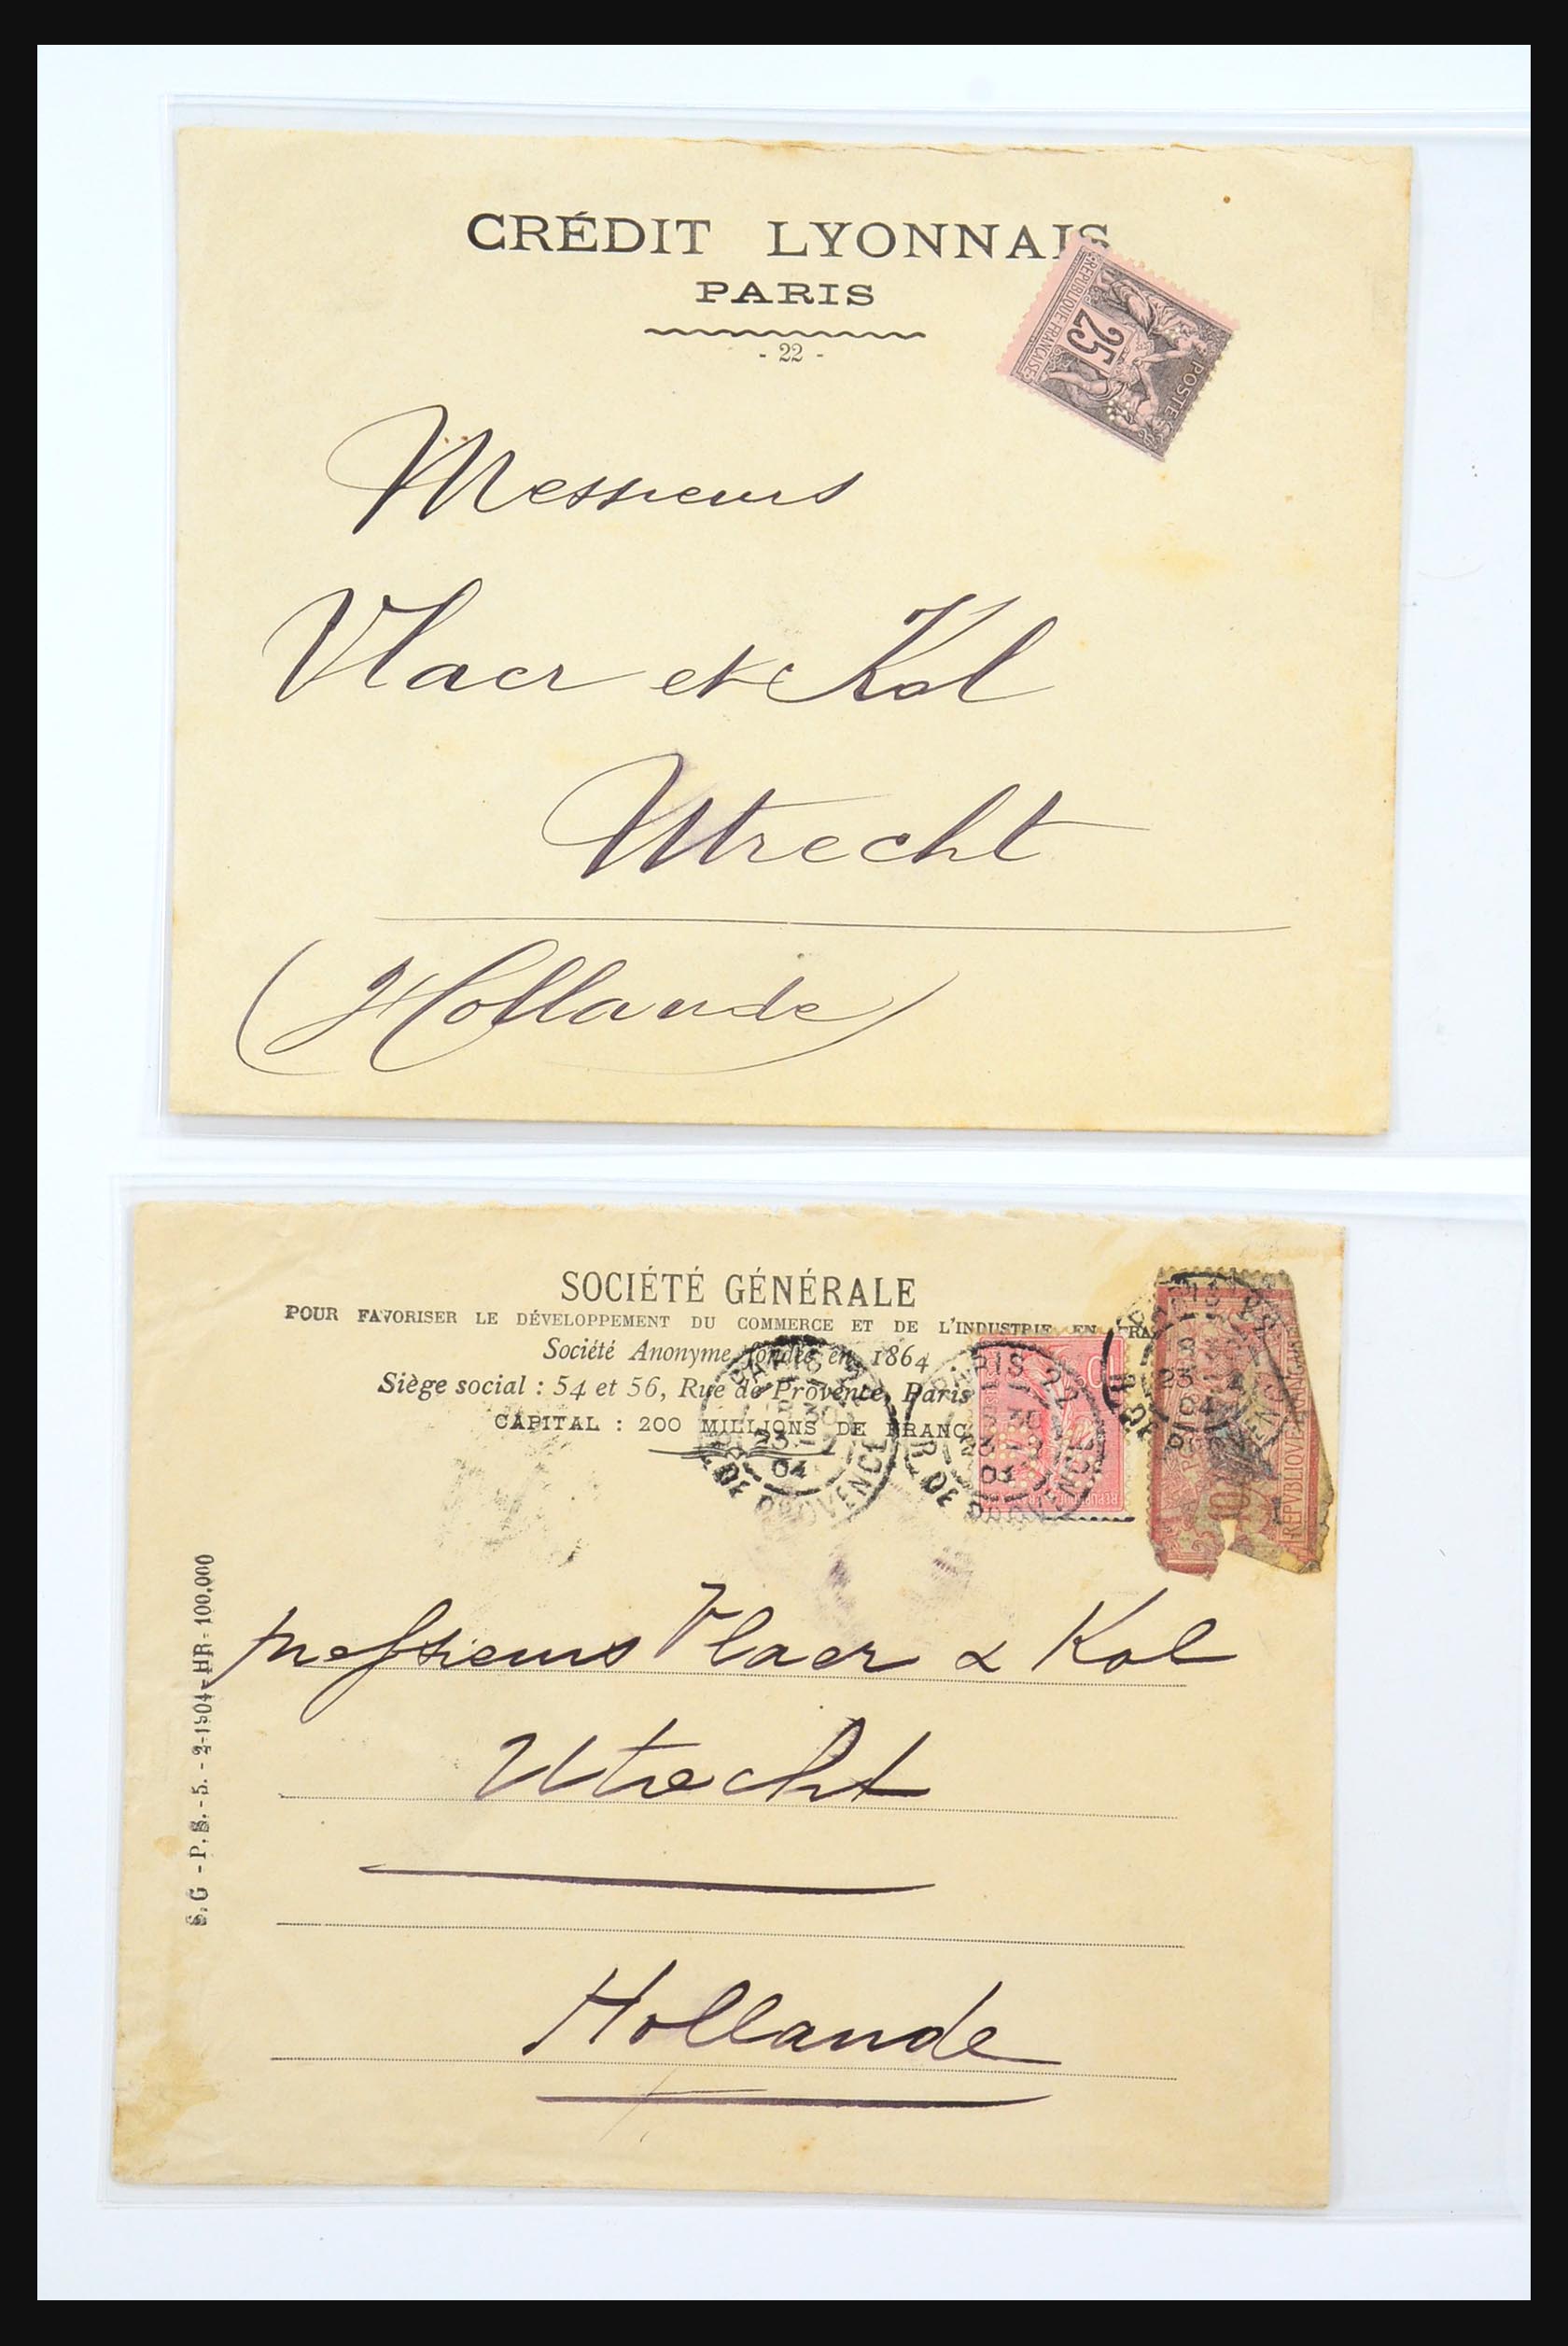 CRÉDIT LYONNAIS
PARIS
- 22 -
25
REPUBLIQUE FRANÇAISE
POSTES
Messieurs
Vlaer et Kol
Utrecht
(Hollande)
SOCIÉTÉ GÉNÉRALE
POUR FAVORISER LE DÉVELOPPEMENT DU COMMERCE ET DE L'INDUSTRIE EN FRA
Société Anonyme fondée en 1864
Siège social : 54 et 56, Rue de Provence, Paris
CAPITAL : 200 MILLIONS DE FRANC
PARIS 22
R. DE PROVENCE
23
04
Messieurs Vlaer & Kol
Utrecht
Hollande
S.G - P.S. - 5. - 2-1904 - HR - 100.000